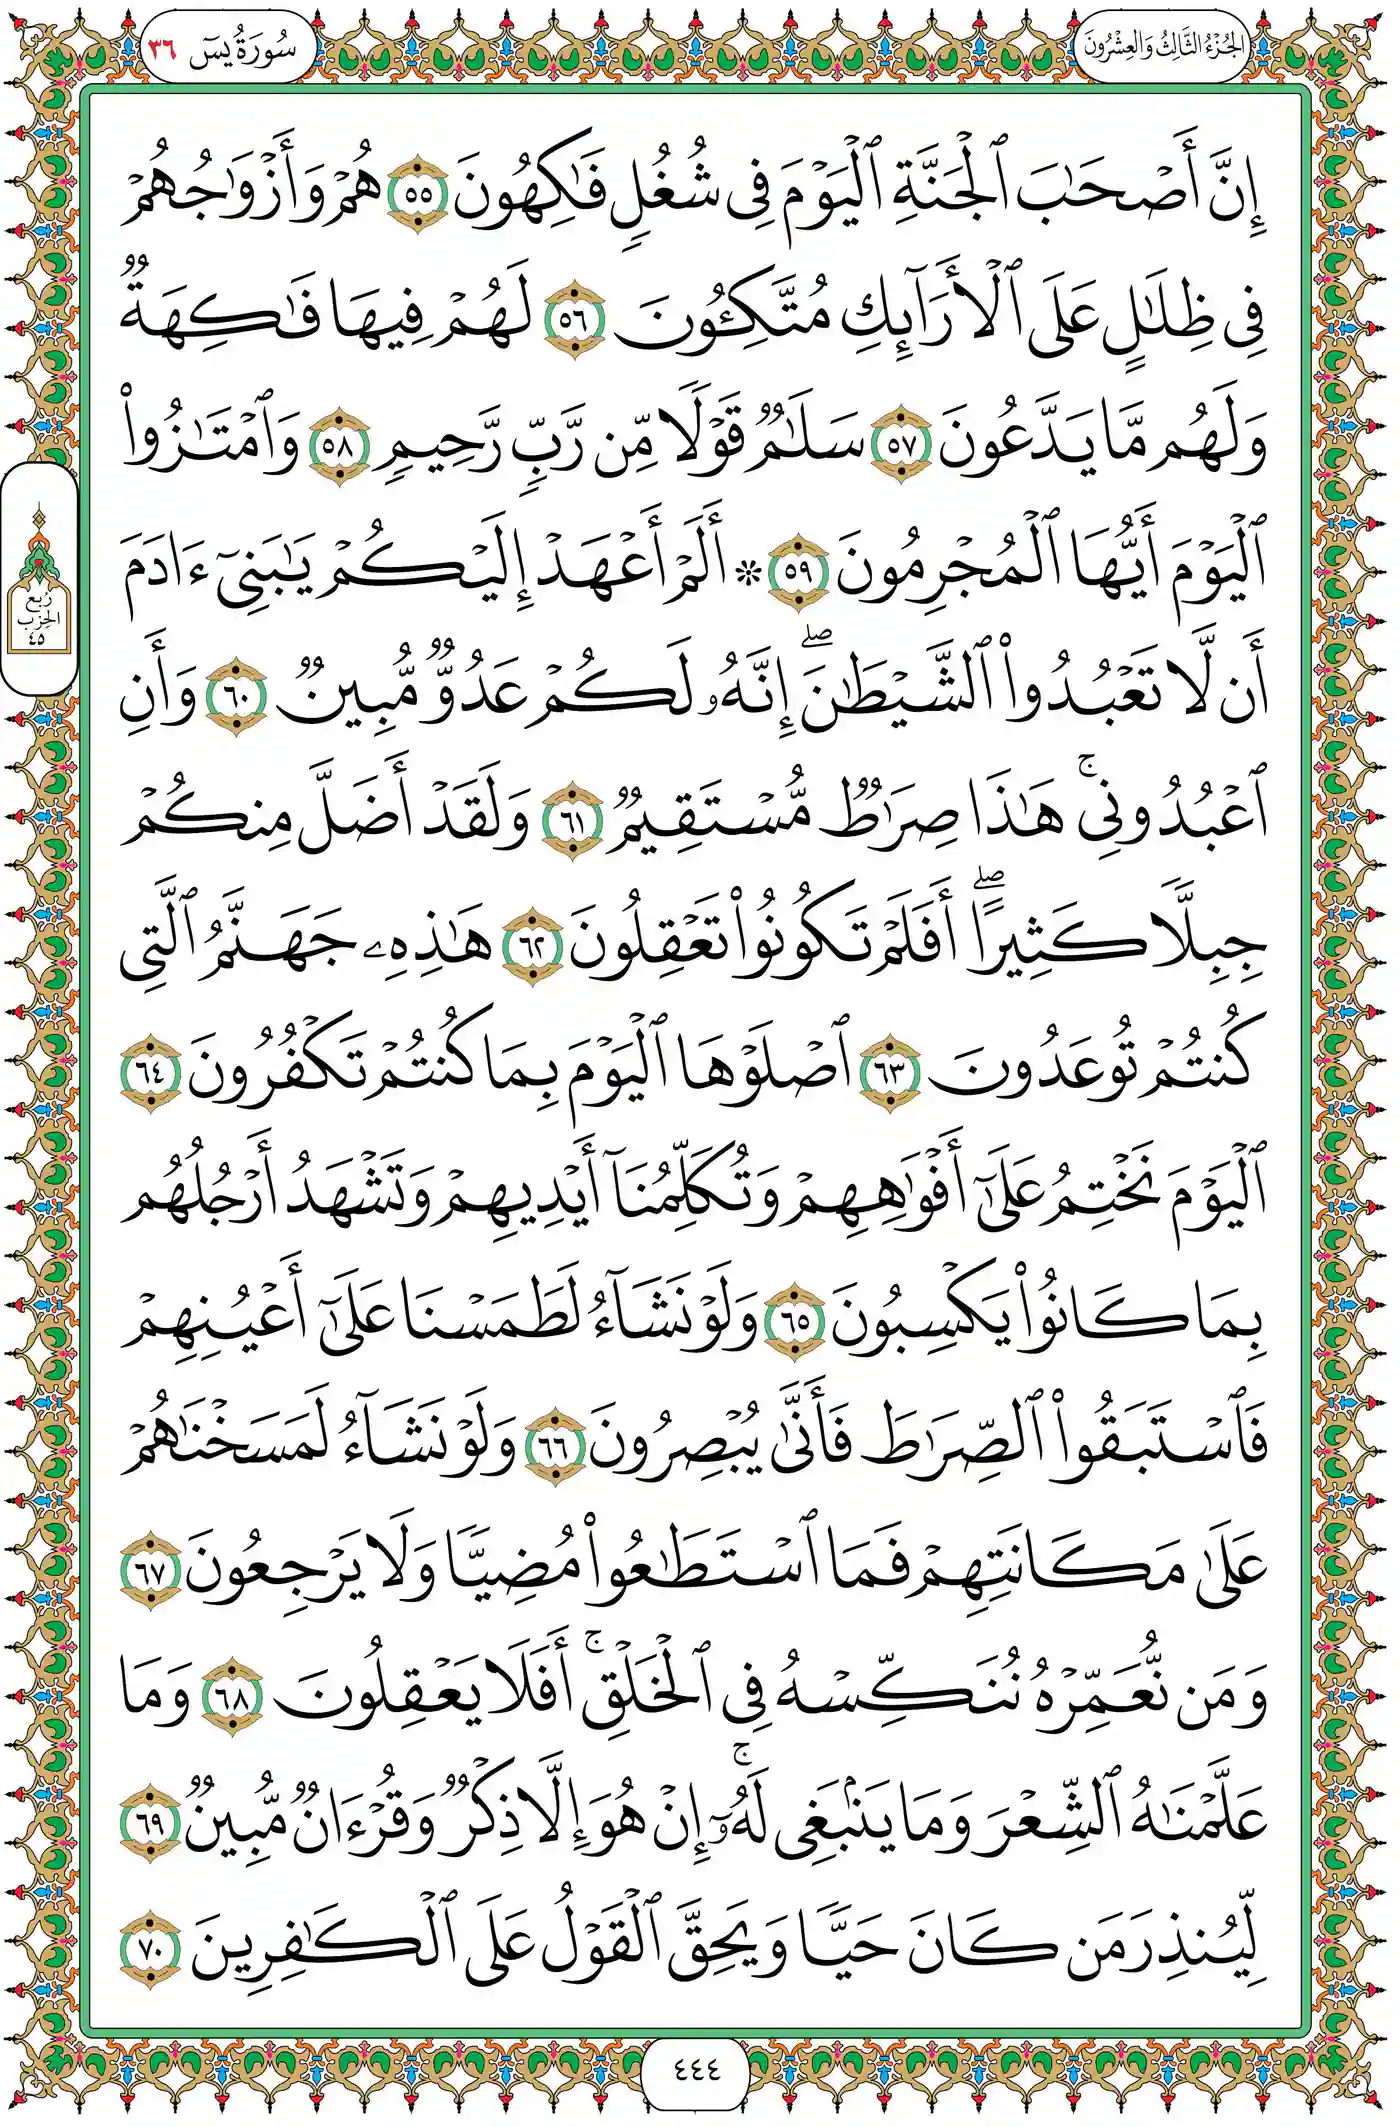 الجُزْءُ الثَّالِثُ وَالعِشْرُونَ
سُورَةُ يسٓ ٣٦
إِنَّ أَصْحَٰبَ ٱلْجَنَّةِ ٱلْيَوْمَ فِى شُغُلٍ فَٰكِهُونَ ٥٥ هُمْ وَأَزْوَٰجُهُمْ
فِى ظِلَٰلٍ عَلَى ٱلْأَرَآئِكِ مُتَّكِـُٔونَ ٥٦ لَهُمْ فِيهَا فَٰكِهَةٌ
وَلَهُم مَّا يَدَّعُونَ ٥٧ سَلَٰمٌ قَوْلًا مِّن رَّبٍّ رَّحِيمٍ ٥٨ وَٱمْتَٰزُوا۟
ٱلْيَوْمَ أَيُّهَا ٱلْمُجْرِمُونَ ٥٩ ۞ أَلَمْ أَعْهَدْ إِلَيْكُمْ يَٰبَنِىٓ ءَادَمَ
أَن لَّا تَعْبُدُوا۟ ٱلشَّيْطَٰنَ ۖ إِنَّهُۥ لَكُمْ عَدُوٌّ مُّبِينٌ ٦٠ وَأَنِ
ٱعْبُدُونِى ۚ هَٰذَا صِرَٰطٌ مُّسْتَقِيمٌ ٦١ وَلَقَدْ أَضَلَّ مِنكُمْ
جِبِلًّا كَثِيرًا ۖ أَفَلَمْ تَكُونُوا۟ تَعْقِلُونَ ٦٢ هَٰذِهِۦ جَهَنَّمُ ٱلَّتِى
كُنتُمْ تُوعَدُونَ ٦٣ ٱصْلَوْهَا ٱلْيَوْمَ بِمَا كُنتُمْ تَكْفُرُونَ ٦٤
ٱلْيَوْمَ نَخْتِمُ عَلَىٰٓ أَفْوَٰهِهِمْ وَتُكَلِّمُنَآ أَيْدِيهِمْ وَتَشْهَدُ أَرْجُلُهُم
بِمَا كَانُوا۟ يَكْسِبُونَ ٦٥ وَلَوْ نَشَآءُ لَطَمَسْنَا عَلَىٰٓ أَعْيُنِهِمْ
فَٱسْتَبَقُوا۟ ٱلصِّرَٰطَ فَأَنَّىٰ يُبْصِرُونَ ٦٦ وَلَوْ نَشَآءُ لَمَسَخْنَٰهُمْ
عَلَىٰ مَكَانَتِهِمْ فَمَا ٱسْتَطَٰعُوا۟ مُضِيًّا وَلَا يَرْجِعُونَ ٦٧
وَمَن نُّعَمِّرْهُ نُنَكِّسْهُ فِى ٱلْخَلْقِ ۚ أَفَلَا يَعْقِلُونَ ٦٨ وَمَا
عَلَّمْنَٰهُ ٱلشِّعْرَ وَمَا يَنۢبَغِى لَهُۥٓ ۚ إِنْ هُوَ إِلَّا ذِكْرٌ وَقُرْءَانٌ مُّبِينٌ ٦٩
لِّيُنذِرَ مَن كَانَ حَيًّا وَيَحِقَّ ٱلْقَوْلُ عَلَى ٱلْكَٰفِرِينَ ٧٠
رُبع
الحِزب
٤٥
٤٤٤